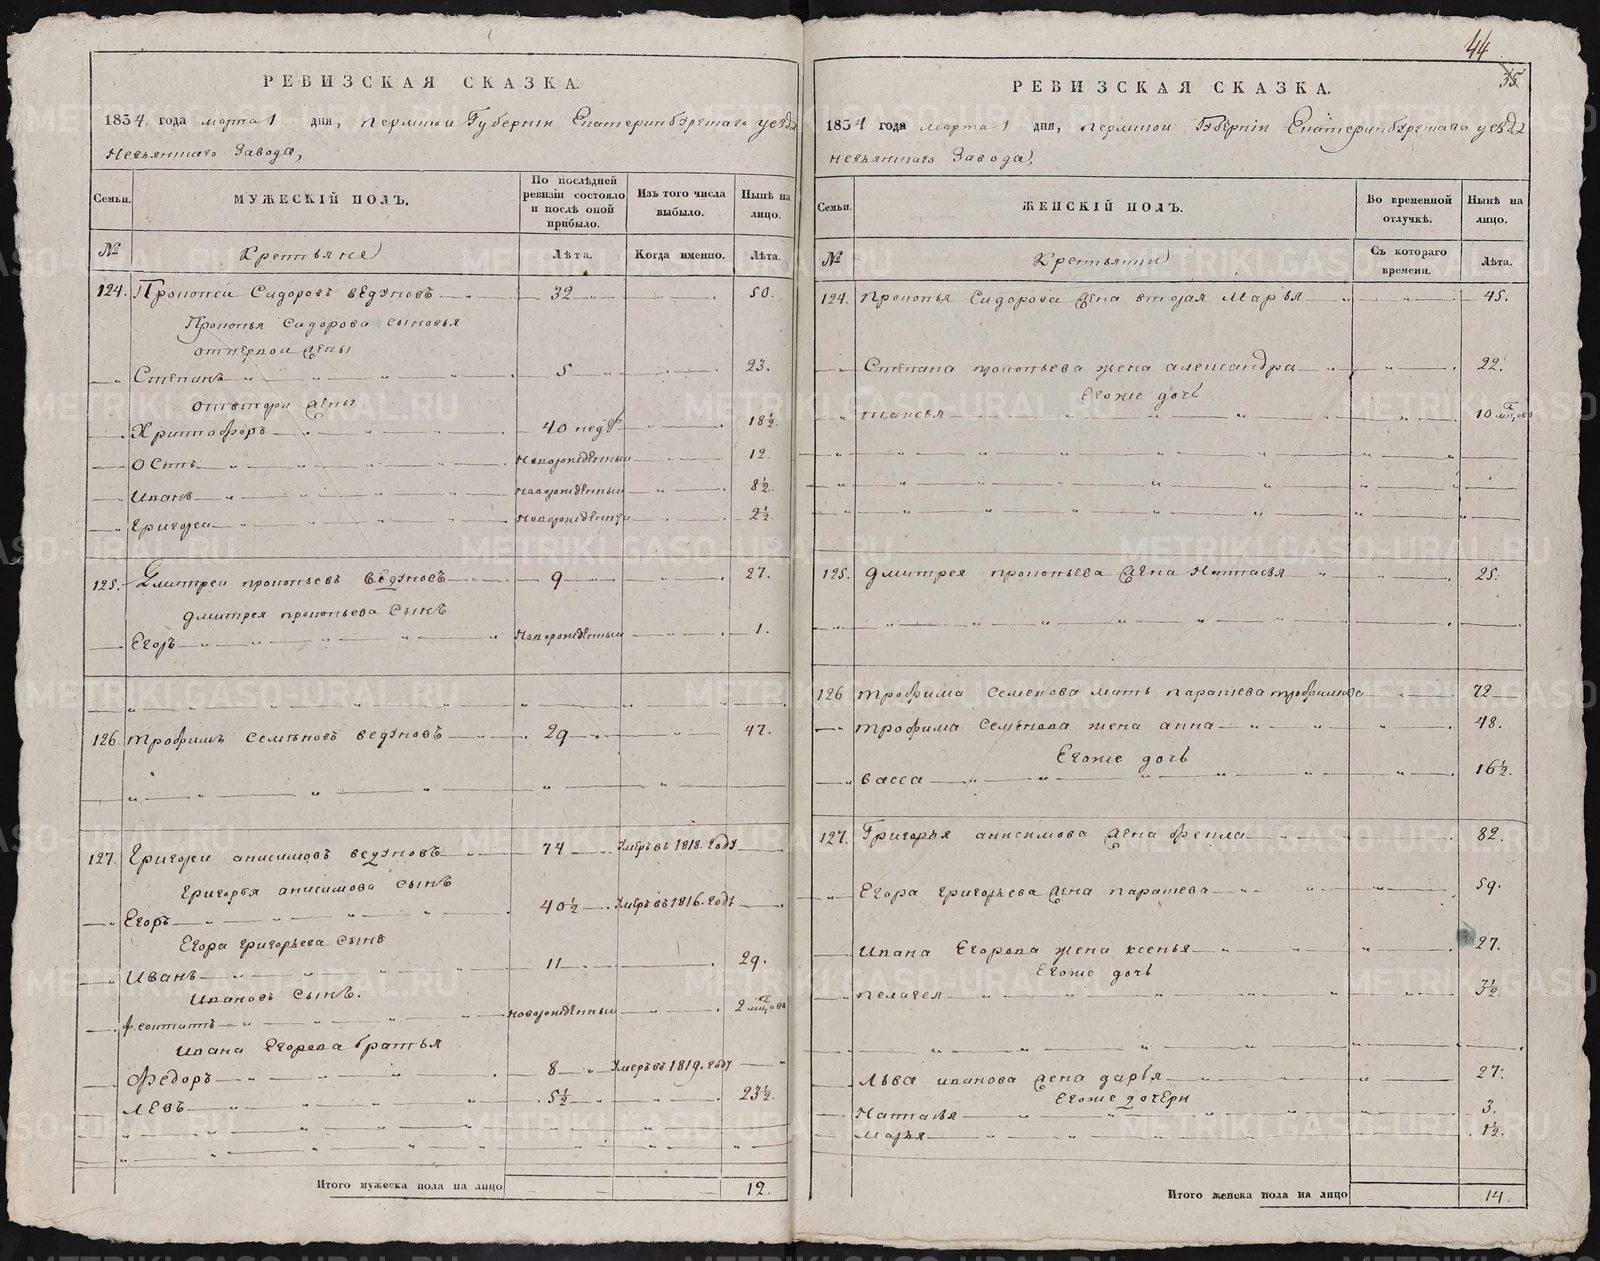 РЕВИЗСКАЯ СКАЗКА.
1834. года марта 1 дня, пермской Губернiи Екатеринбургскаго уезда
Невьянскаго Завода,
Семьи.
МУЖЕСКIЙ ПОЛЪ.
По послѣдней ревизiи состояло и послѣ оной прибыло.
Изъ того числа выбыло.
Нынѣ на лицо.
№
Крестьяне
Лѣта.
Когда именно.
Лѣта.
124. Прокопей Сидоровъ ведуновъ 32 50.
Прокопья Сидорова сыновья
от первой жены
Степанъ 5 23.
от второй жены
Христофоръ 40 недѣ 18½.
Осипъ новорожденный 12.
Иванъ новорожденный 8½.
Григорей новорожденный 2½.
125. Дмитрей прокопьевъ ведуновъ 9 27.
Дмитрея прокопьева сынъ
Егоръ новорожденный 1.
126. Трофимъ Семеновъ ведуновъ 29 47.
127. Григорей анисимовъ ведуновъ 74 Умеръ въ 1818. году
Григорья анисимова сынъ
Егоръ 40½ Умеръ въ 1816. годъ
Егора григорьева сынъ
Иванъ 11 29.
Ивановъ сынъ.
феоктистъ новорожденный 2 мѣсцовъ
Ивана Егорова братья
Федоръ 8 Умеръ въ 1819. году
Левъ 5½ 23½.
Итого мужеска пола на лицо 12.
44
35
РЕВИЗСКАЯ СКАЗКА.
1834 года марта 1 дня, пермской Губернiи Екатеринбургскаго уезда
невьянскаго Завода,
Семьи.
ЖЕНСКIЙ ПОЛЪ.
Во временной отлучкѣ.
Нынѣ на лицо.
№
Крестьянки
Съ котораго времени.
Лѣта.
124. прокопья Сидорова жена вторая Марья 45.
Степана прокопьева жена александра 22.
Егоже дочь
10 мѣсцовъ
125. Дмитрея прокопьева жена Наталья 25.
126 трофима Семенова мать парасева трофимова 72
трофима Семенова жена анна 48.
Егоже дочь
васса 16½.
127. Григорья анисимова жена фекла 82.
Егора григорьева жена парасева 59.
Ивана Егорова жена ксенья 27.
Егоже дочь
пелагея 3½.
Льва иванова жена дарья 27.
Егоже дочери
Наталья 3.
марья 1½.
Итого женска пола на лицо 14.